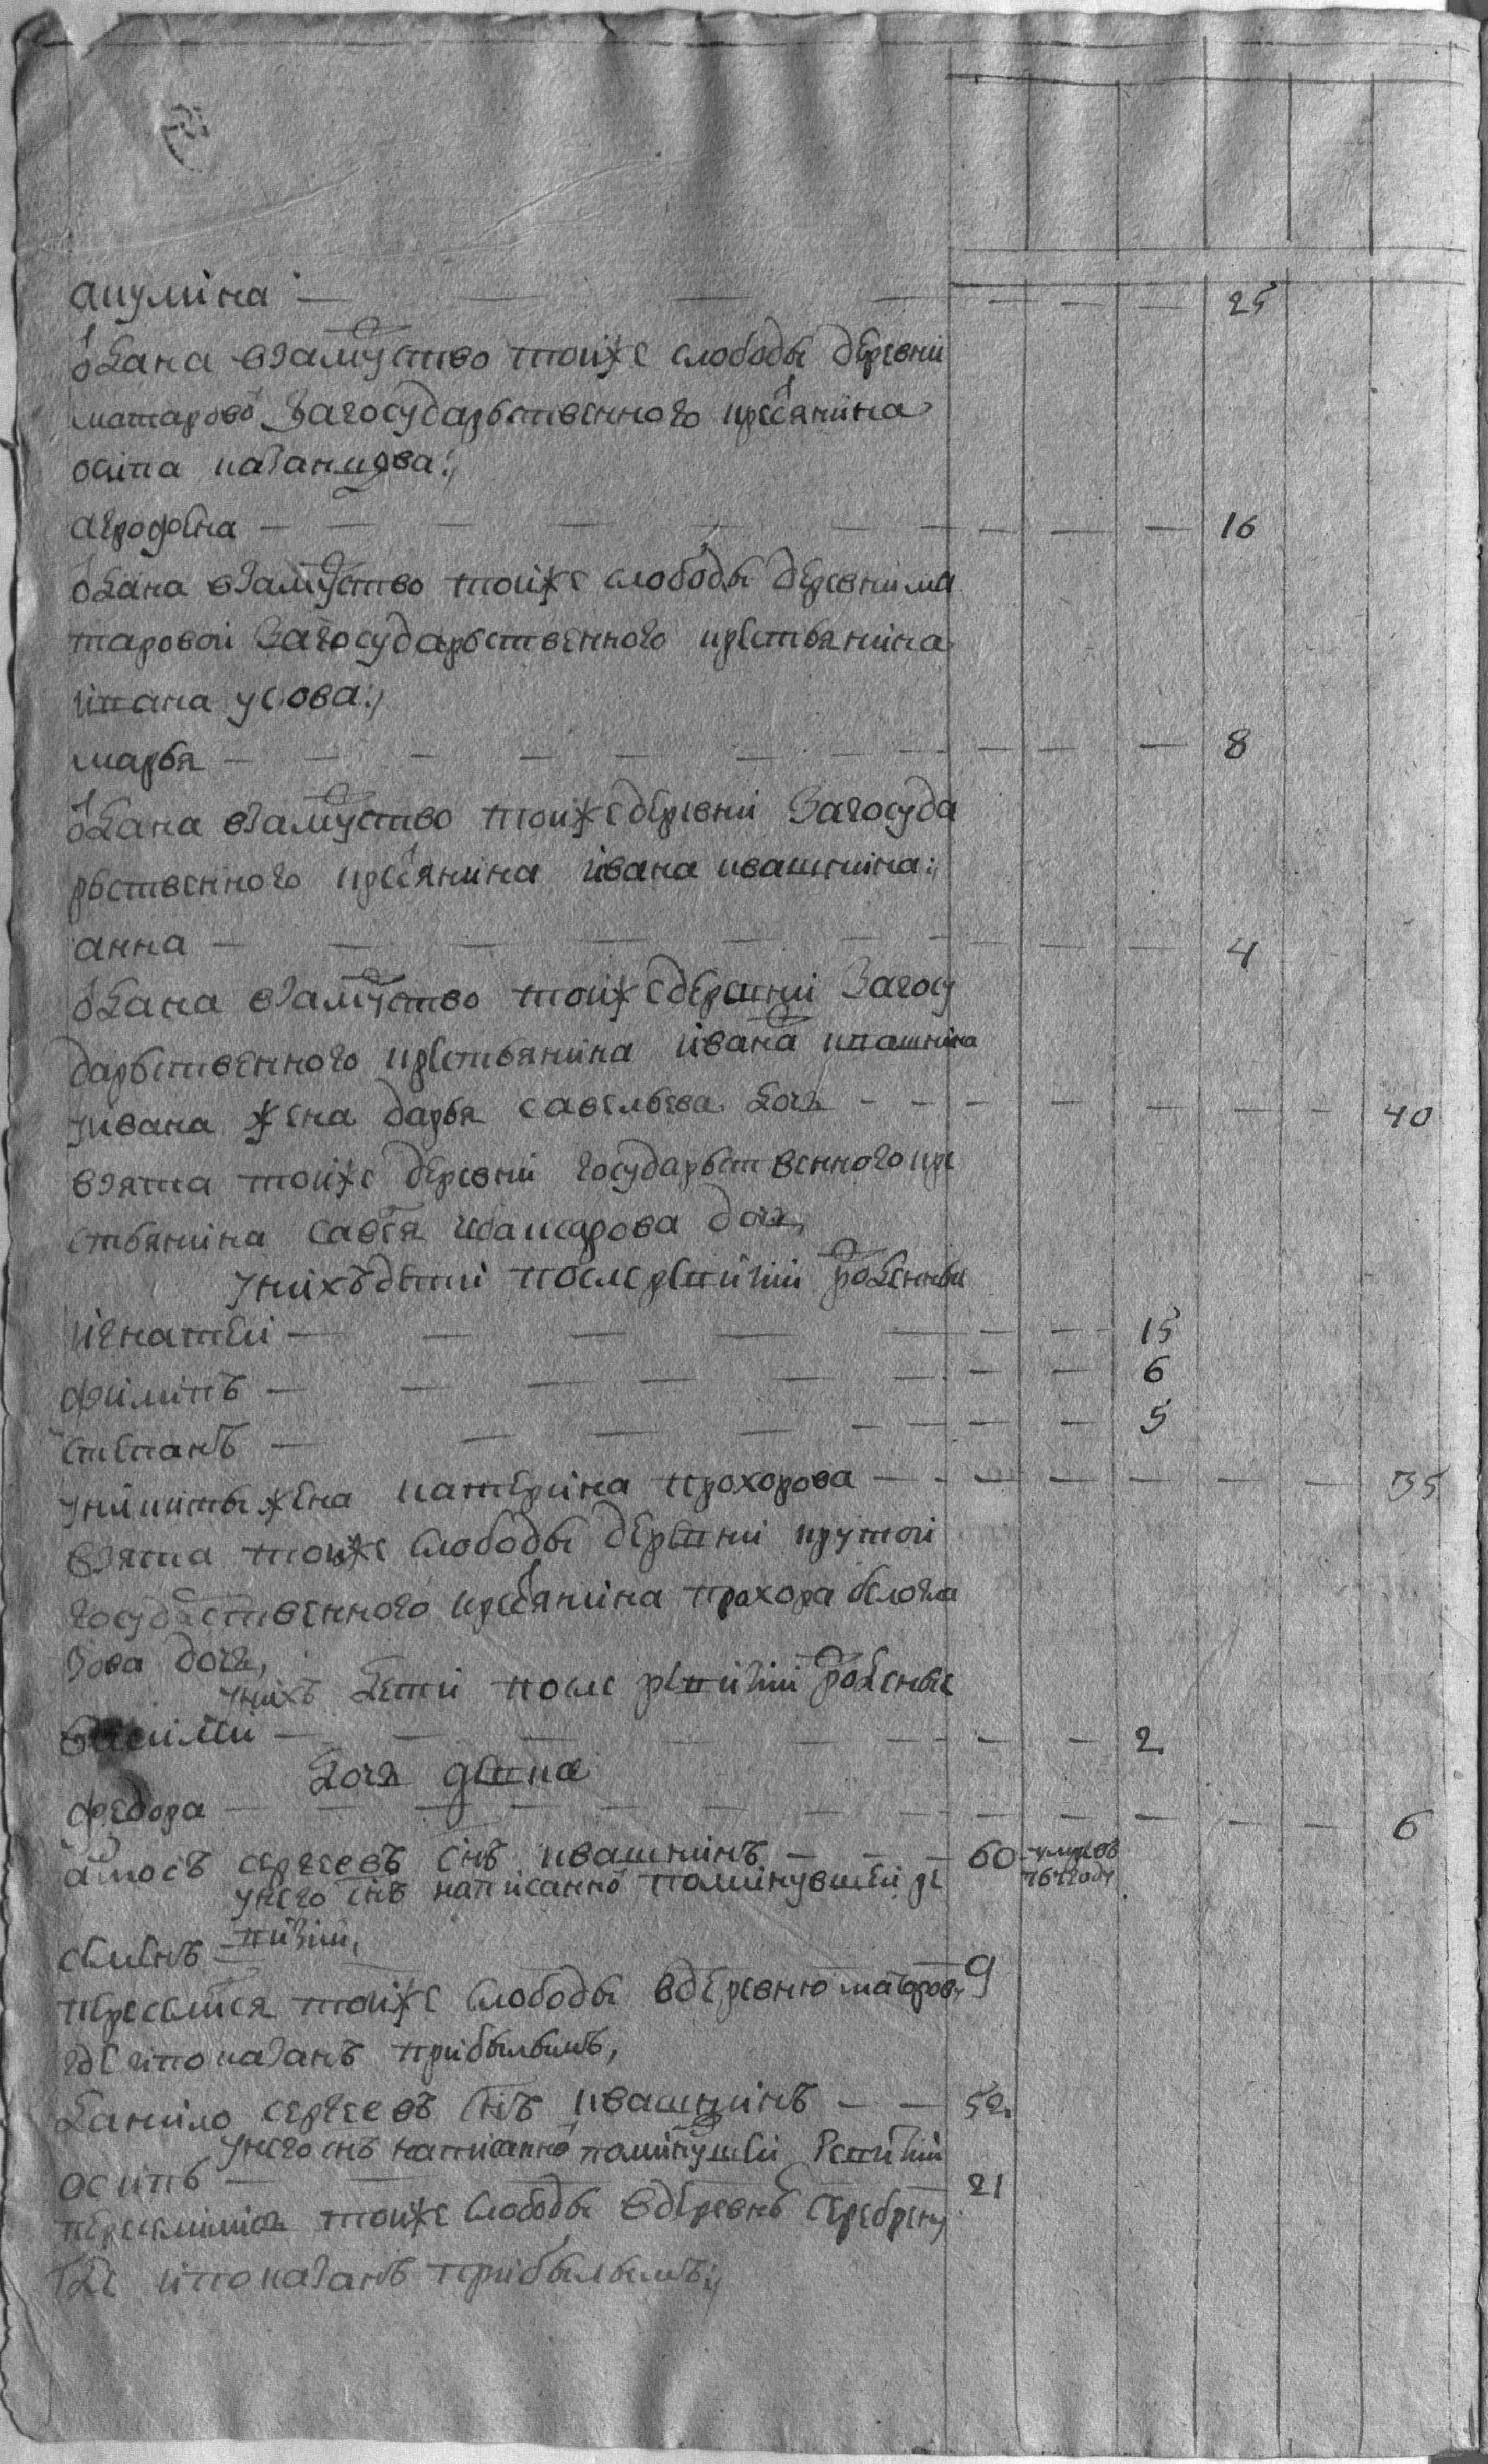 акулина — — — — — — — 25
одана взамуство тоиже слободы деревни
матарово загосударьственного кресянина
осипа казанцова:,
агрофена — — — — — — — — — 16
одана взамуство тоиже слободы деревни ма
таровои загосударьственного крестьянина
ивана усова:,
марья — — — — — — — — — 8
одана взамуство тоиже деревни загосуда
рьственного кресянина ивана квашнина:,
анна — — — — — — — — 4
одана взамуство тоиже деревни загосу
дарьственного крестьянина ивана квашнина
уивана жена дарья савельева дочь — — — — — — — — 40
взята тоиже деревни государьственного кре
стьянина савеля дочь,
унихъ дети после ревизии рожденные
игнатеи — — — — — — — 15
филипъ — — — — — — — — 6
степанъ — — — — — — — 5
уникиты жена катерина прохорова — — — — — — — 35
взята тоиже слободы деревни крутои
государственного кресянина прохора белогла
зова дочь,
унихъ дети после ревизии рожденные
— — — — — — — 2
дочь девка
федора — — — — — — — — — — — — 6
амосъ сергеевъ снъ квашнинъ — — — 60 умре въ
764 году
унего снъ написанно поминувшеи ре
визии,
семенъ — — 9
переселился тоиже слободы вдеревню матарову
где ипоказанъ прибылымъ,
данило сергеевъ снъ квашнинъ — — 52
унего снъ написанно поминувшеи ревизии
осипъ — — 21
переселились тоиже слободы вдеревню серебрену
где ипоказанъ прибылымъ:,